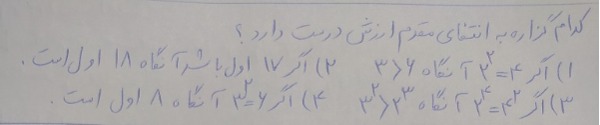 کدام گزاره به انتفای مقدم ارزشی درست دارد؟
۱) اگر ۲^۲=۴ آنگاه ۶<۳   ۲) اگر ۱۷ اول باشد آنگاه ۱۸ اول است.
۳) اگر ۲^۴=۴^۲ آنگاه ۲^۳<۳^۲   ۴) اگر ۳^۲=۶ آنگاه ۸ اول است.